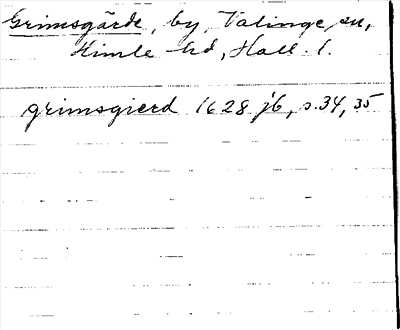 Grimsgärde, by, Valinge sn,
Himle hd, Hall. l.
grimsgierd 1628 jb, s. 34, 35